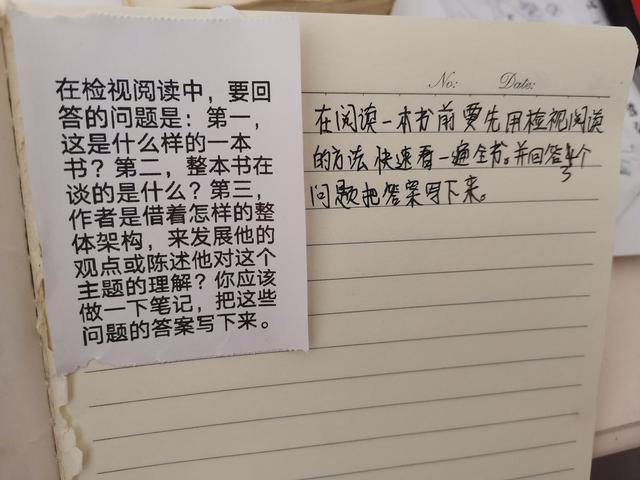 在检视阅读中，要回
答的问题是：第一，
这是什么样的一本
书？第二，整本书在
谈的是什么？第三，
作者是借着怎样的整
体架构，来发展他的
观点或陈述他对这个
主题的理解？你应该
做一下笔记，把这些
问题的答案写下来。
No: Date:
在阅读一本书前要先用检视阅读
的方法快速看一遍全书。并回答3个
问题把答案写下来。